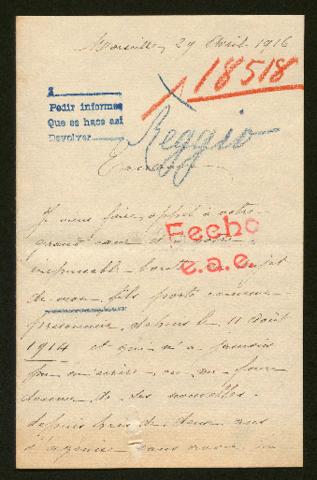 Marseille, 29 Avril 1916
18518
A
Pedir informes
Que se hace así
Devolver
Reggio
Je viens faire appel à votre
grand cœur et à votre
Fecho
e.a.e.
bonté au sujet
de mon fils porté comme
prisonnier, depuis le 11 Août
1914 et qui n'a jamais
pu m'écrire, ou me faire
donner de ses nouvelles.
depuis de deux ans
j'agonise sans avoir